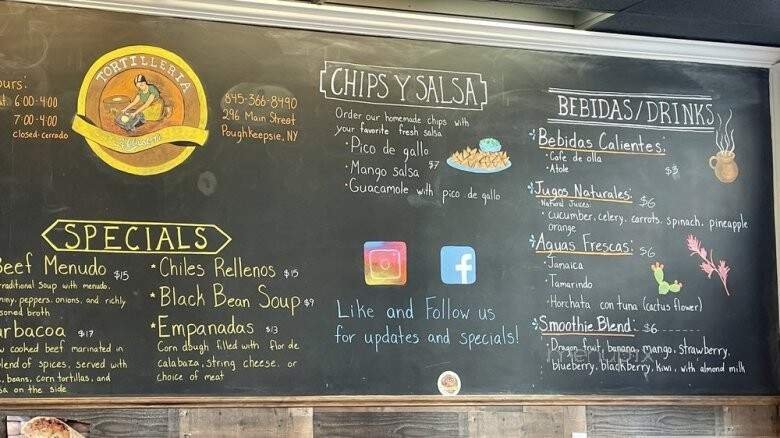 ours:
at 6:00-4:00
7:00-4:00
closed-cerrado
TORTILLERIA
845-366-8490
296 Main Street
Poughkeepsie, NY
SPECIALS
Beef Menudo $15
raditional Soup with menudo,
miny, peppers, onions, and richly
soned broth
arbacoa $17
w cooked beef marinated in
blend of spices, served with
, beans, corn tortillas, and
sa on the side
* Chiles Rellenos $15
* Black Bean Soup $9
* Empanadas $13
Corn dough filled with flor de
calabaza, string cheese, or
choice of meat
CHIPS Y SALSA
Order our homemade chips with
your favorite fresh salsa
· Pico de gallo
· Mango salsa $7
· Guacamole with pico de gallo
Like and Follow us
for updates and specials!
BEBIDAS/DRINKS
Bebidas Calientes:
· Cafe de olla
· Atole $3
Jugos Naturales: $6
Natural Juices:
· cucumber, celery, carrots, spinach, pineapple
orange
Aguas Frescas: $6
· Jamaica
· Tamarindo
· Horchata con tuna (cactus flower)
Smoothie Blend: $6
· Dragon fruit, banana, mango, strawberry,
blueberry, blackberry, kiwi, with almond milk
menupix